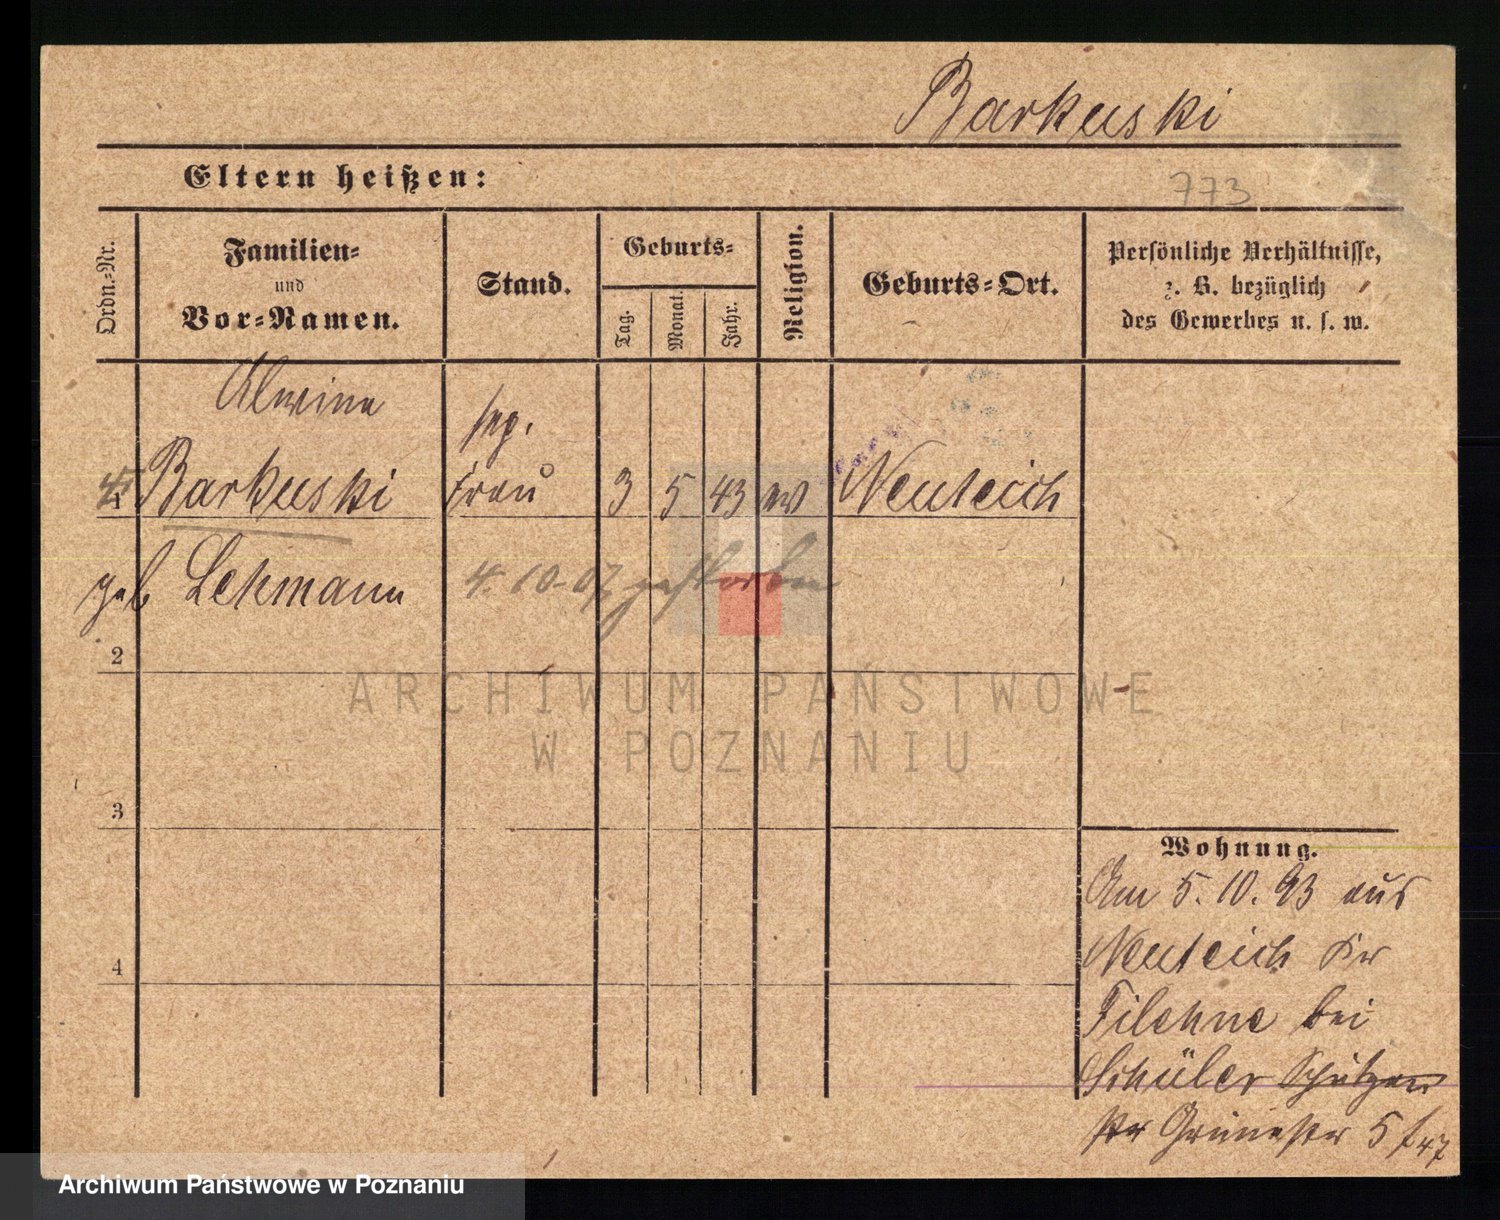 Barkuski
Eltern heißen:
773
Ordn.-Nr.
Familien-
und
Vor-Namen.
Stand.
Geburts-
Tag.
Monat.
Jahr.
Religion.
Geburts-Ort.
Persönliche Verhältnisse,
z. B. bezüglich
des Gewerbes u. s. w.
Alwine
sep.
1 Barkuski Frau 3 5 43 ev Neuteich
geb Lehmann 4. 10. 07 gestorben
2
ARCHIWUM PAŃSTWOWE
W POZNANIU
3
Wohnung.
Am 5. 10. 93 aus
Neuteich Kr
4
Filehne bei
Schüler Schützen
str Grünestr 5
Archiwum Państwowe w Poznaniu